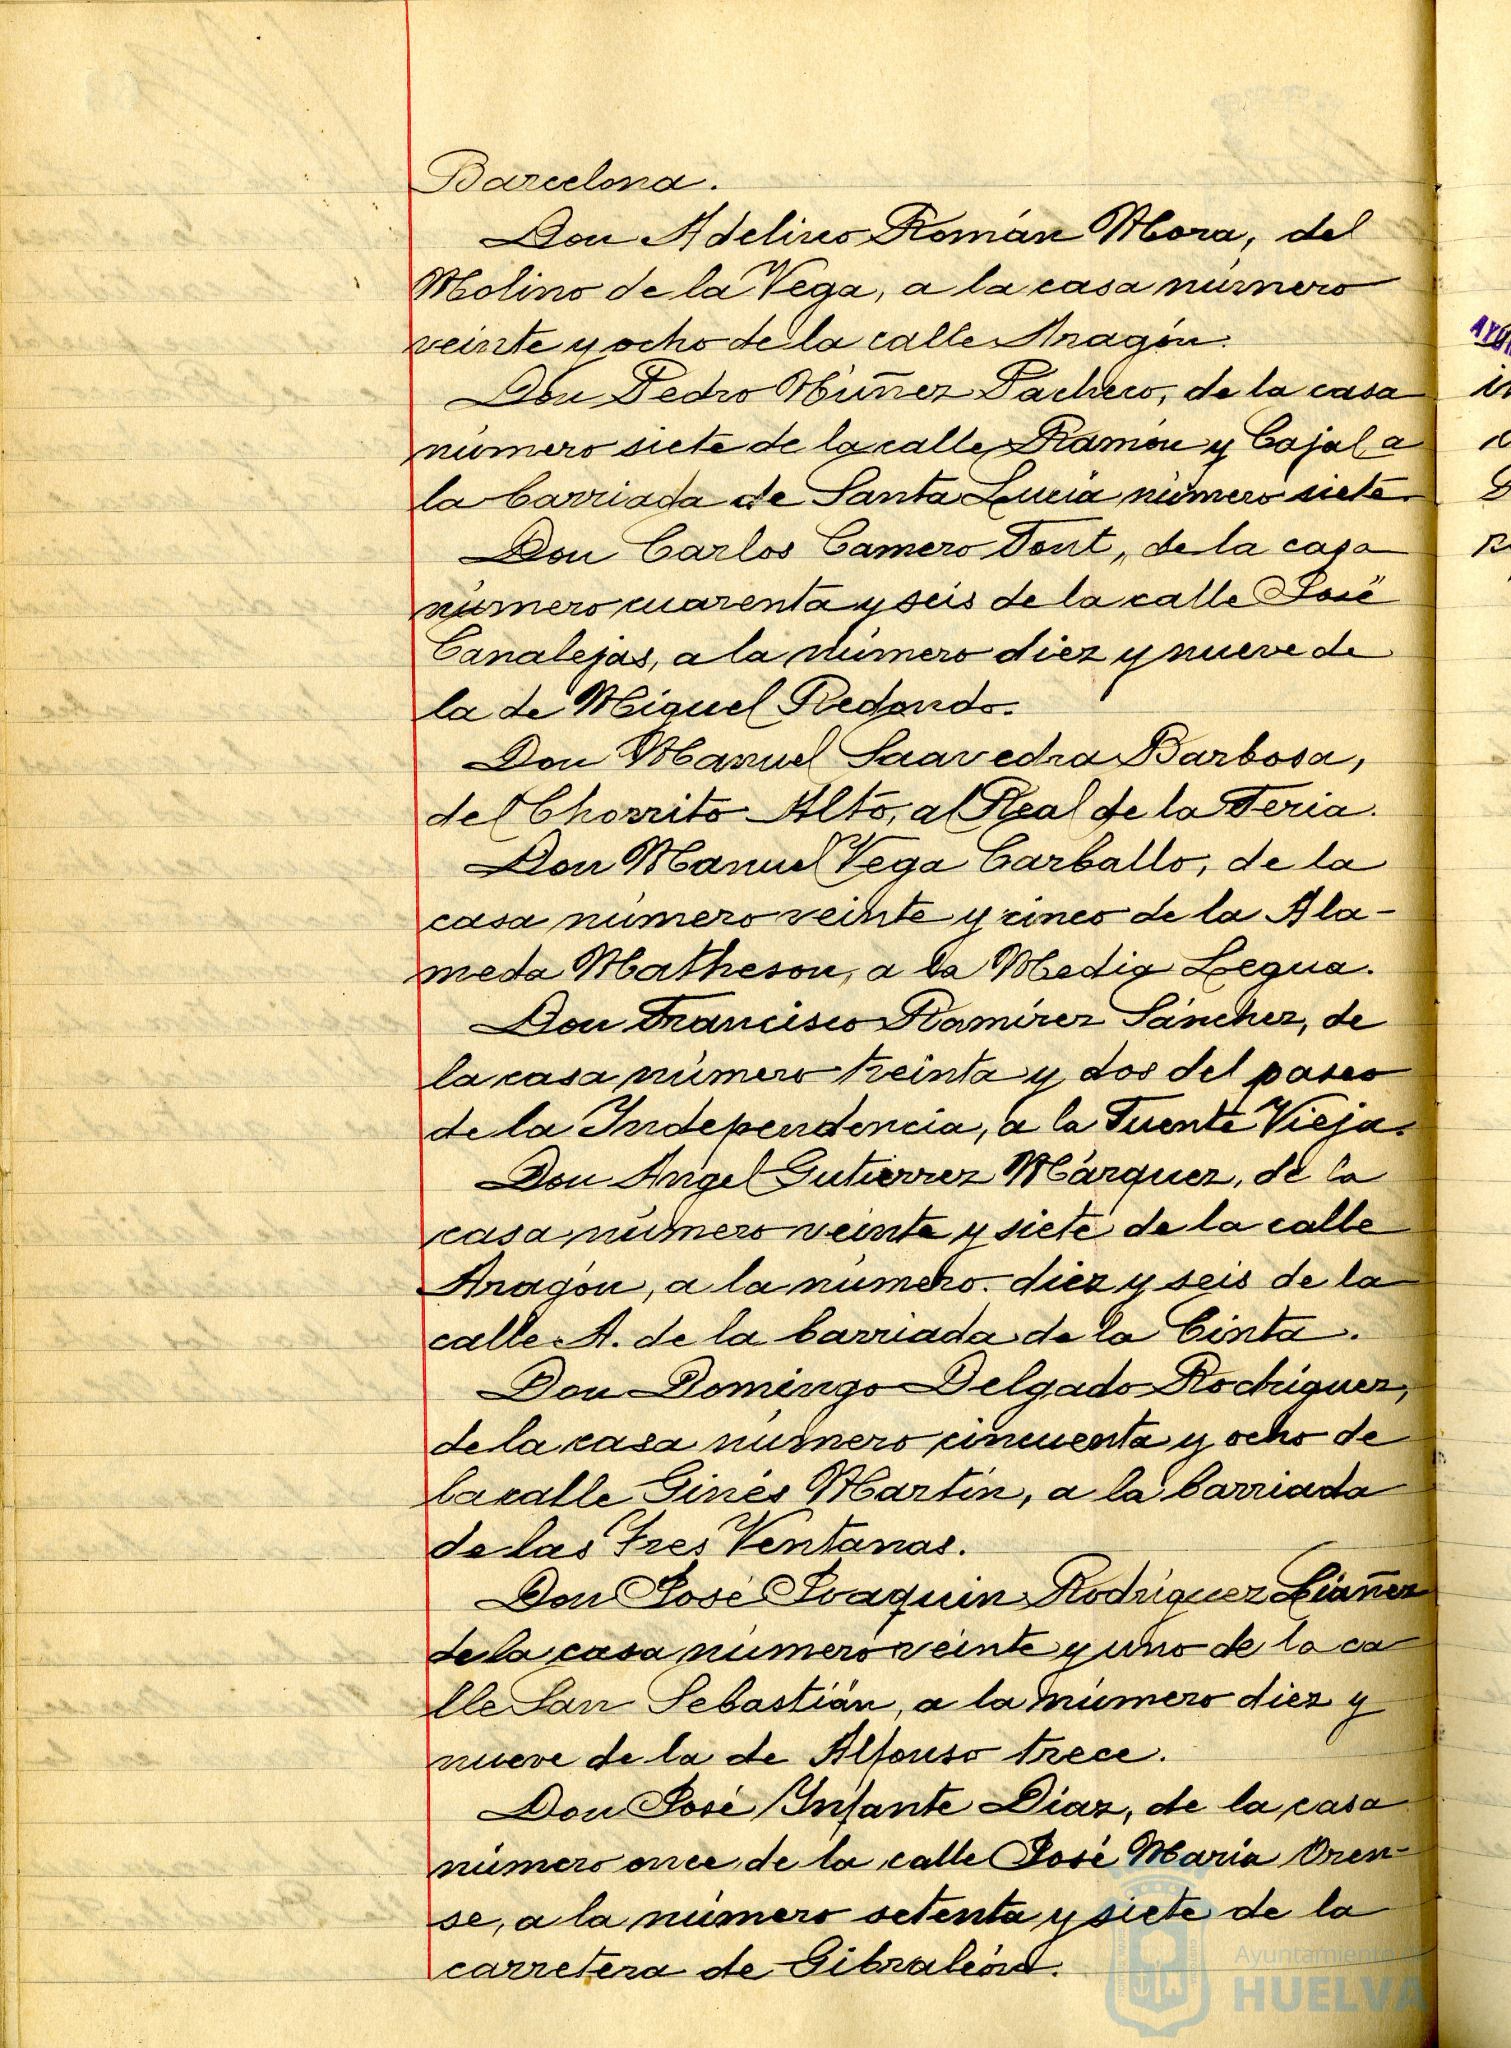 Barcelona.
Don Adelino Román Mora, del
Molino de la Vega, a la casa número
veinte y ocho de la calle Aragón.
Don Pedro Núñez Pacheco, de la casa
número siete de la calle Ramón y Cajal a
la barriada de Santa Lucía número siete.
Don Carlos Camero Font, de la casa
número cuarenta y seis de la calle José
Canalejas, a la número diez y nueve de
la de Miguel Redondo.
Don Manuel Saavedra Barbosa,
del Chorrito Alto, al Real de la Feria.
Don Manuel Vega Carballo, de la
casa número veinte y cinco de la Ala-
meda Matheson, a la Media Legua.
Don Francisco Ramírez Sánchez, de
la casa número treinta y dos del paseo
de la Independencia, a la Fuente Vieja.
Don Angel Gutierrez Márquez, de la
casa número veinte y siete de la calle
Aragón, a la número. diez y seis de la
calle A. de la barriada de la Cinta.
Don Domingo Delgado Rodríguez,
de la casa número cincuenta y ocho de
la calle Ginés Martín, a la barriada
de las Tres Ventanas.
Don José Joaquín Rodríguez Liáñez
de la casa número veinte y uno de la ca
lle San Sebastián, a la número diez y
nueve de la de Alfonso trece.
Don José Infante Díaz, de la casa
número once de la calle José María Oren-
se, a la número setenta y siete de la
carretera de Gibraleón.
Ayuntamiento
HUELVA